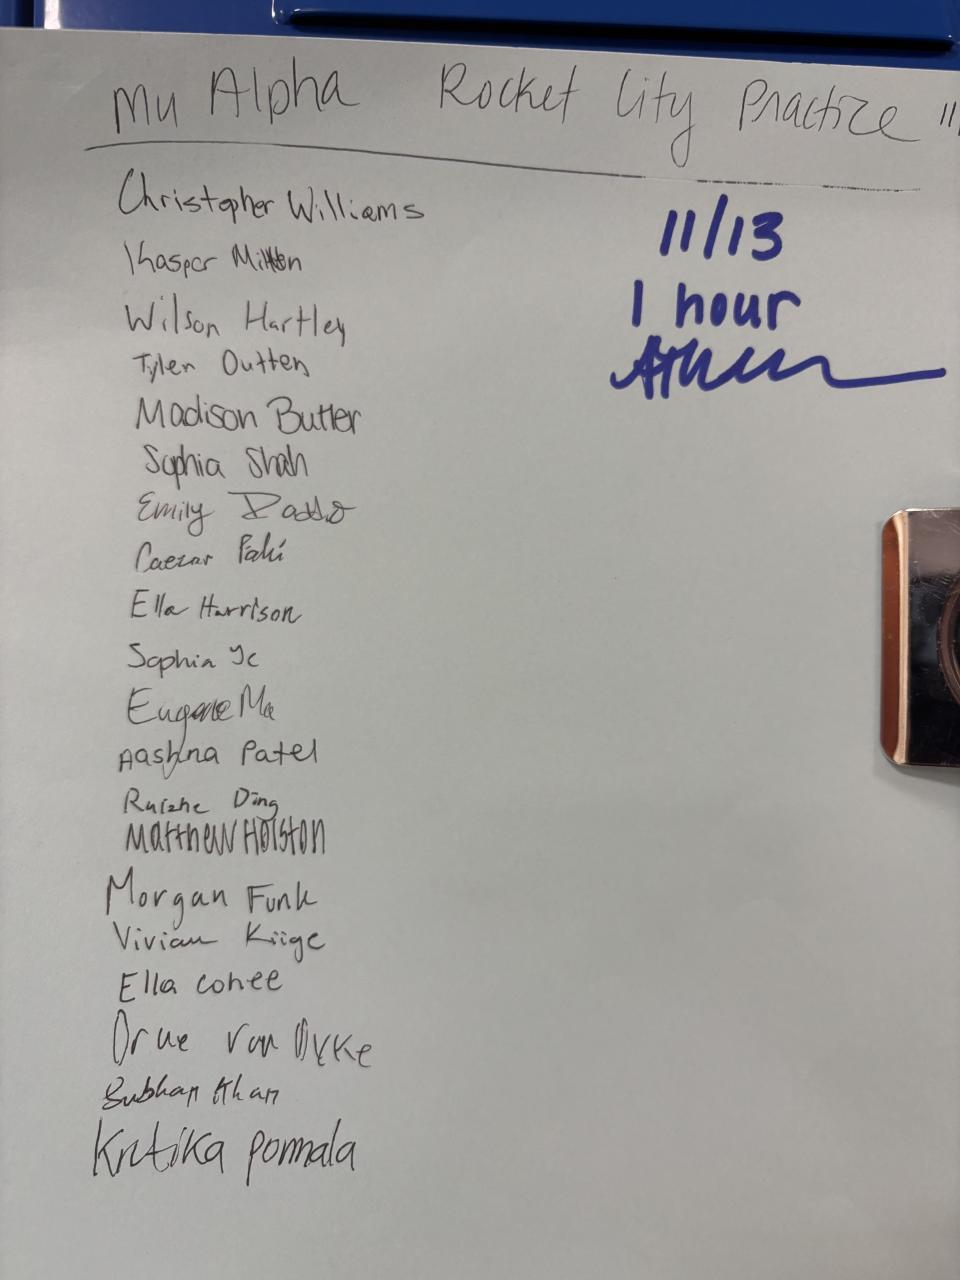 Mu Alpha Rocket City Practice 11
Christopher Williams
11/13
Kasper
1 hour
Wilson Hartley
Tyler Outten
Madison Butler
Sophia Shah
Emily
Caezar
Ella Harrison
Sophia Ye
Eugene Ma
Aashna Patel
Ruizhe Ding
Matthew Holston
Morgan Funk
Vivian Kiige
Ella Cohee
Drue Van Dyke
Subhan Khan
Kritika Pormala